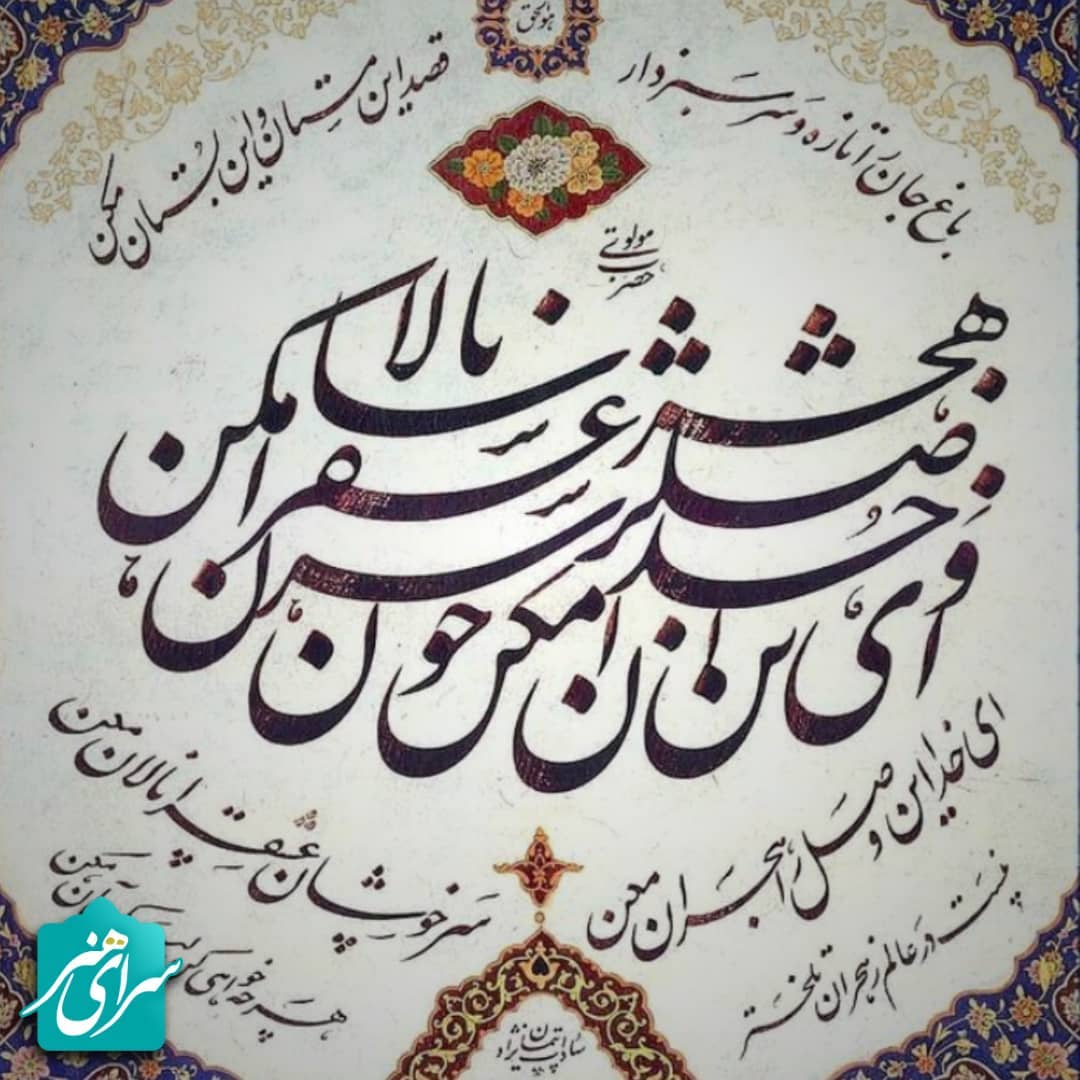 هوالحق
باغ جان را تازه و سرسبز دار
قصد این مستان و این بستان مکن
حضرت مولوی
ای خدا این وصل را هجران مکن
سرخوشان عشق را نالان مکن
ای خدا این وصل را هجران مکن
سرخوشان عشق را نالان مکن
نیست در عالم ز هجران تلختر
هرچه خواهی کن
مکن
سرای هنر